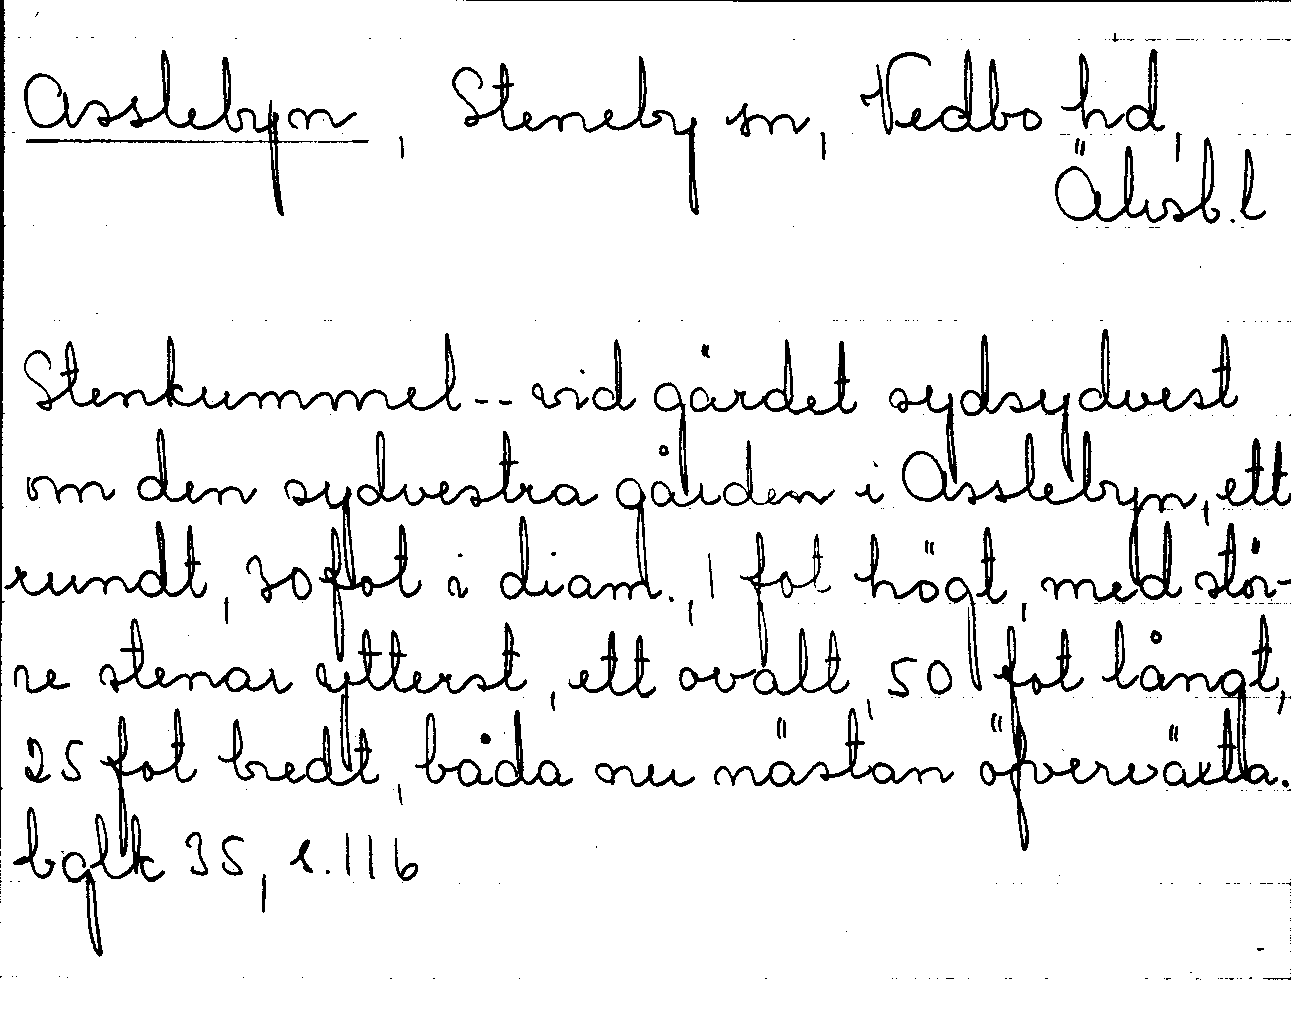 Asslebyn, Steneby sn, Vedbo hd,
Älvsb.l
Stenkummel -- vid gärdet sydsydvest
om den sydvestra gården i Asslebyn, ett
rundt, 30 fot i diam., 1 fot högt, med stör-
re stenar ytterst, ett ovalt, 50 fot långt,
25 fot bredt, båda nu nästan öfverväxta.
bglk 35, s. 116